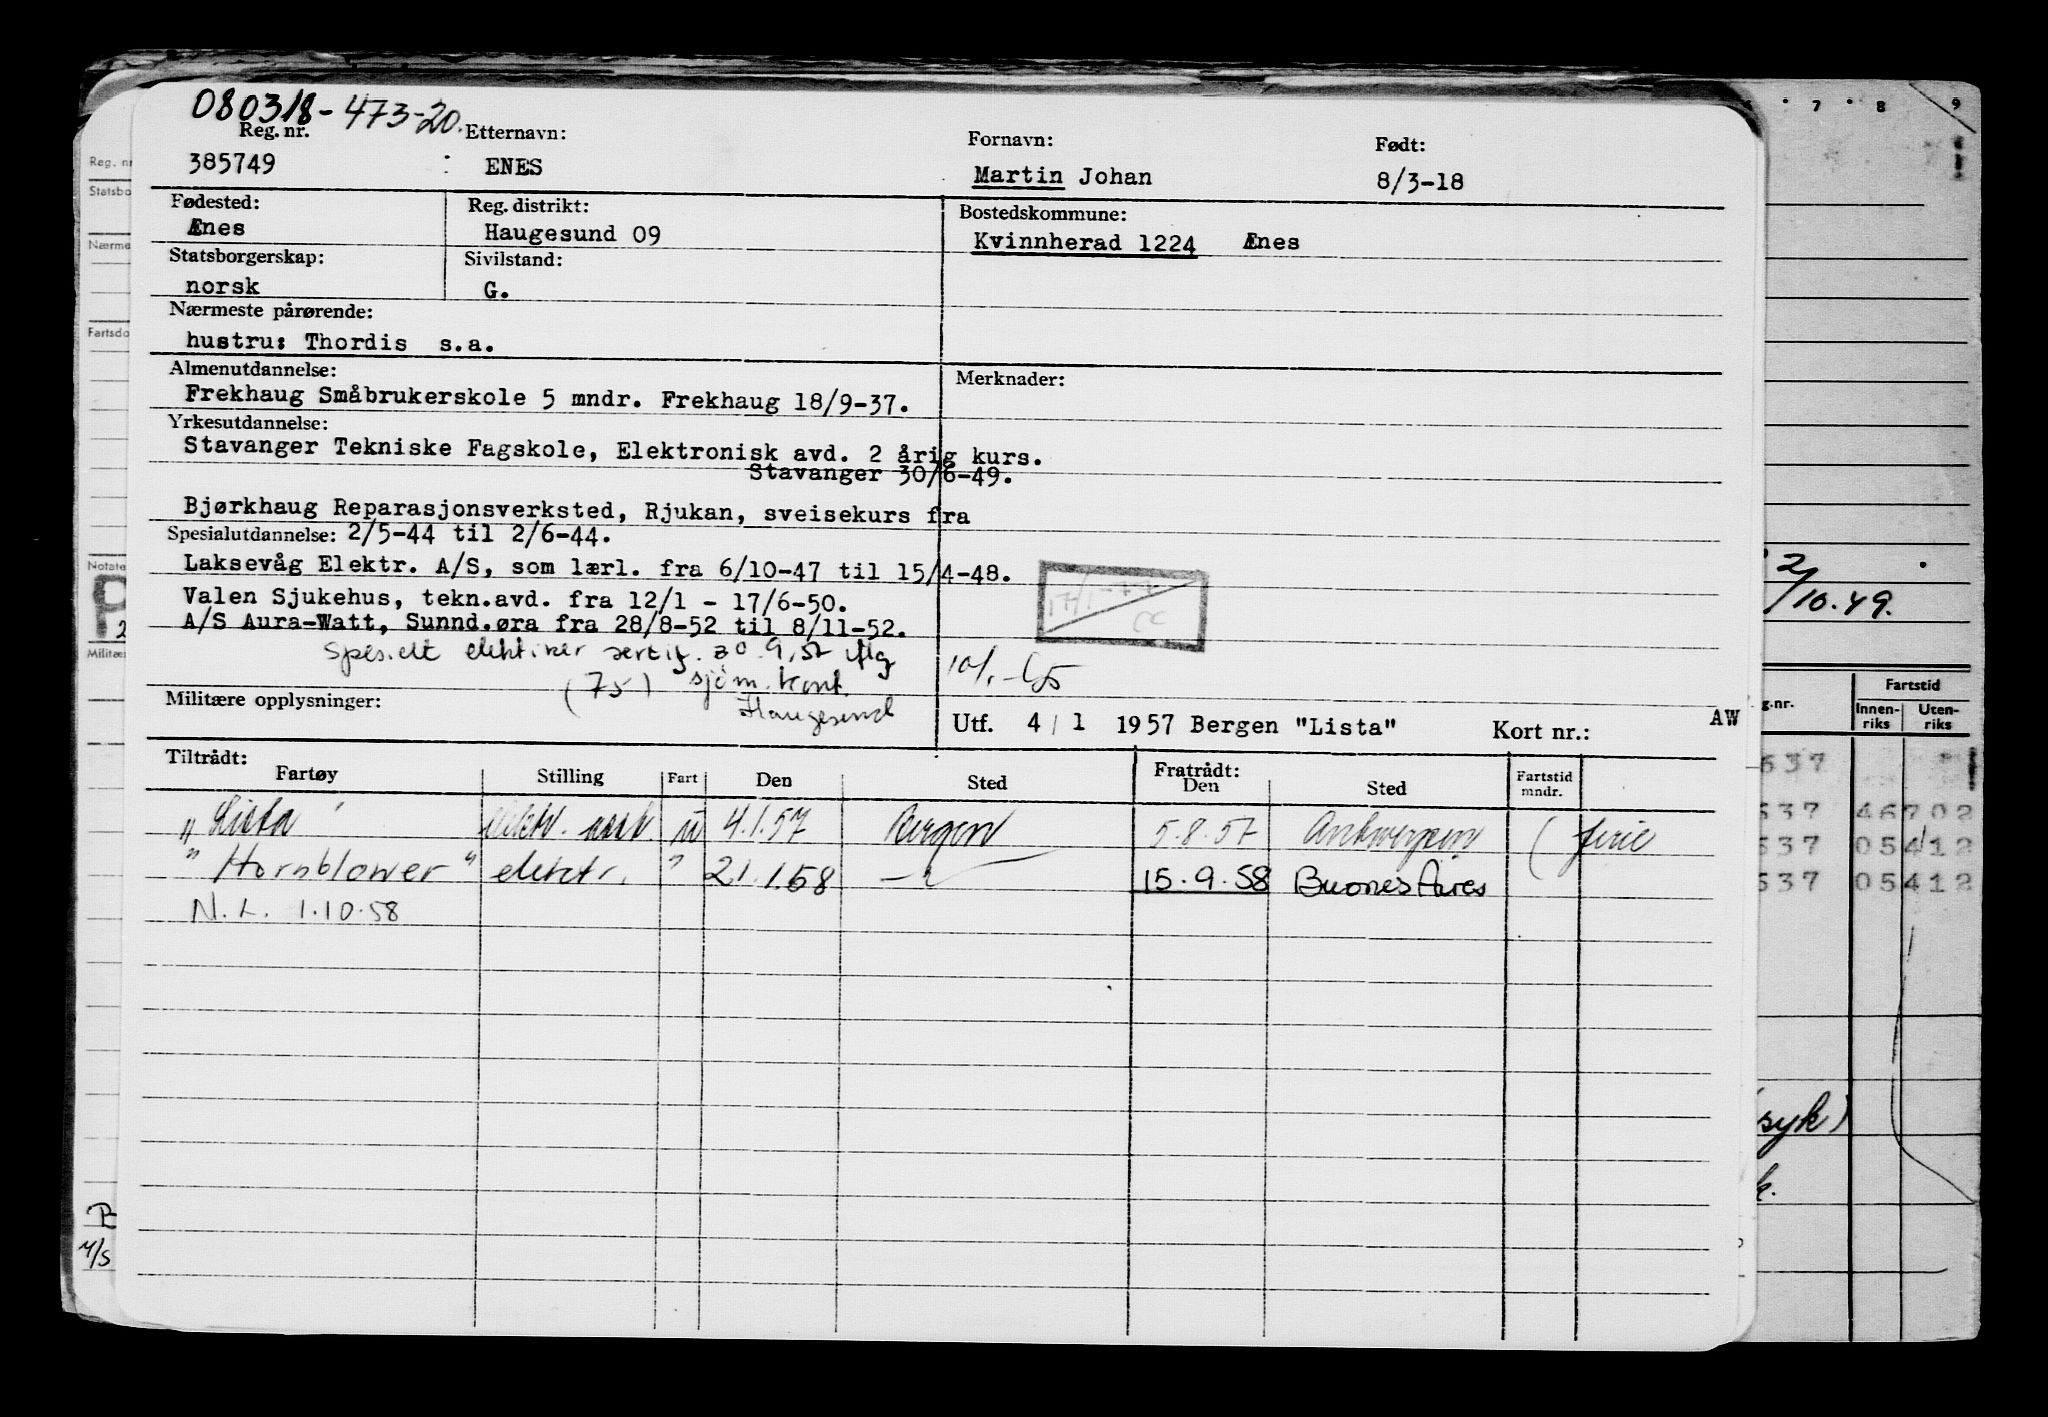 080318-473-20.
Reg. nr. Etternavn: Fornavn: Født:
385749 ENES Martin Johan 8/3-18
Fødested: Reg. distrikt: Bostedskommune:
Ænes Haugesund 09 Kvinnherad 1224 Ænes
Statsborgerskap: Sivilstand:
norsk G.
Nærmeste pårørende:
hustru: Thordis s.a.
Almenutdannelse: Merknader:
Frekhaug Småbrukerskole 5 mndr. Frekhaug 18/9-37.
Yrkesutdannelse:
Stavanger Tekniske Fagskole, Elektronisk avd. 2 årig kurs.
Stavanger 30/6-49.
Bjørkhaug Reparasjonsverksted, Rjukan, sveisekurs fra
Spesialutdannelse: 2/5-44 til 2/6-44.
Laksevåg Elektr. A/S, som lærl. fra 6/10-47 til 15/4-48.
Valen Sjukehus, tekn.avd. fra 12/1 - 17/6-50.
A/S Aura-Watt, Sunnd.øra fra 28/8-52 til 8/11-52.
Spesielt elektriker sertif. 30.9.57 iflg
(75) sjøm. kont.
Haugesund
Militære opplysninger:
Utf. 4/1 1957 Bergen "Lista" Kort nr.: AW
Tiltrådt: Fratrådt:
Fartøy Stilling Fart Den Sted Den Sted Fartstid mndr.
"Lista" elektr. asst. u 4.1.57 Bergen 5.8.57 Antwerpen (ferie
"Hornblower" elektr. " 21.1.58 15.9.58 Buones Aires
N.L. 1.10.58
7 8 9
Reg. nr
Statsbo
Nærme
Fartsdo
Notate
P
2
Militær
M/S
2/10.49.
Fartstid
g.nr. Innen-riks Uten-riks
537
537 46702
537 05412
537 05412
(syk)
k.